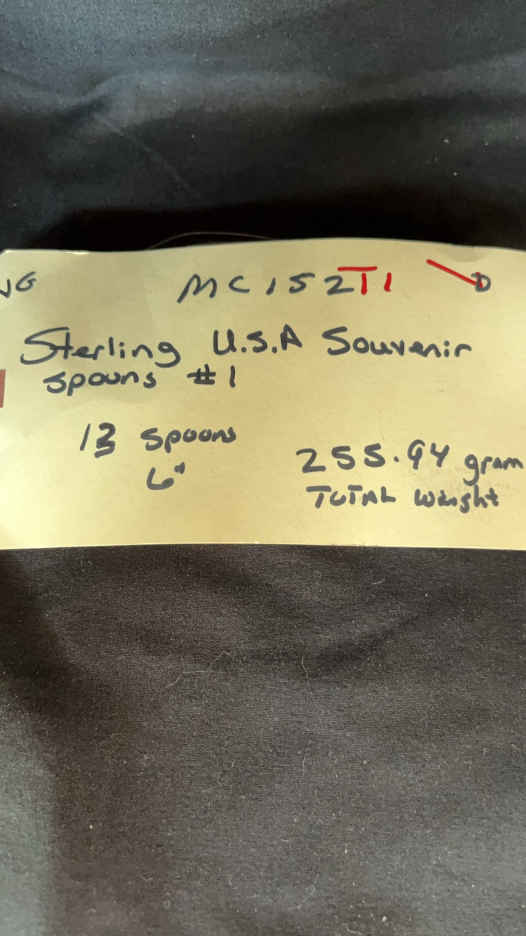 NG MC152T1 D
Sterling U.S.A Souvenir
spoons #1
13 spoons
6"
255.94 gram
TOTAL Weight